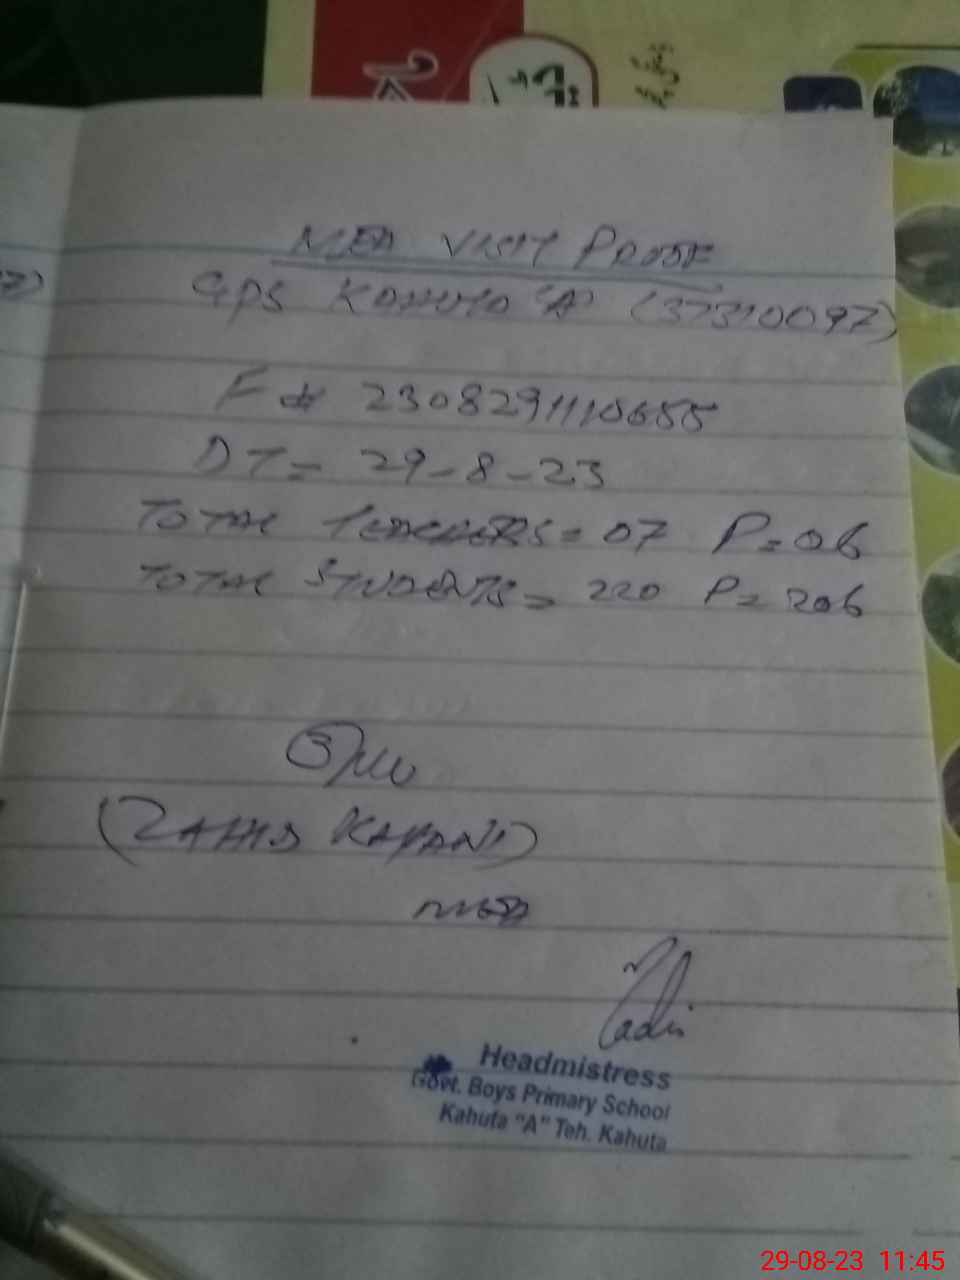 MEA VISIT PROOF
GPS KAHUTA 'A' (37310097)
F # 2308291110655
DT = 29-8-23
TOTAL TEACHERS = 07 P = 06
TOTAL STUDENTS = 220 P = 206
(ZAHID KAYANI)
MEA
Headmistress
Govt. Boys Primary School
Kahuta "A" Teh. Kahuta
29-08-23 11:45